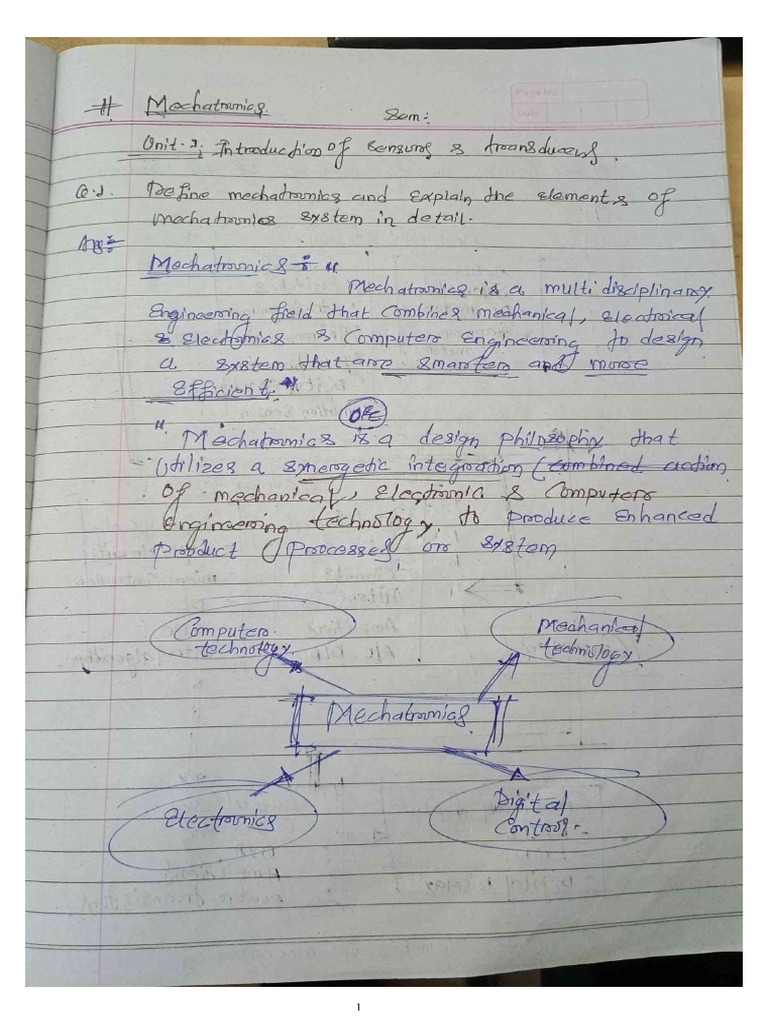 Page No
Date
# Mechatronics.
Sem:
Unit-1: Introduction of Sensors & transducers.
Q.1. Define mechatronics and Explain the elements of
mechatronics system in detail.
Ans:
Mechatronics :- "
Mechatronics is a multidisciplinary
Engineering field that combines mechanical, electrical
& Electronics & Computer Engineering to design
a system that are smarter and more
Efficient."
OR
" Mechatronics is a design philosophy that
utilizes a synergetic integration (combined action
of mechanical, Electronic & Computer
engineering technology. to produce Enhanced
product processes, or system
Computer
technology.
Mechanical
technology.
Mechatronics.
Electronics
Digital
Control.
1